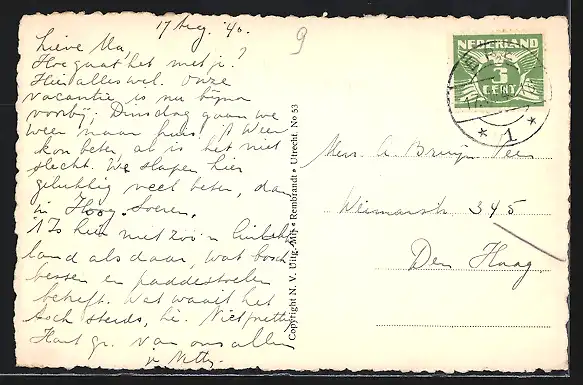 17 Aug. '40.
9
Lieve Ma,
Hoe gaat het met je?
Hier alles wel. Onze
vacantie is nu bijna
voorbij; Dinsdag gaan we
weer naar huis. 't Weer
kon beter, al is het niet
slecht. We slapen hier
gelukkig veel beter, dan
in Hoog Soeren.
't Is hier niet zoo'n
land als daar, wat bosch
bessen en paddestoelen
betreft. Wat waait het
toch steeds, hè.
Hart. gr. van ons allen
Copyright N. V. Uitg. Mij. Rembrandt • Utrecht. No 53
NEDERLAND
3
CENT
1
Mevr. A. Bruijn
Weimarstr. 345
Den Haag.